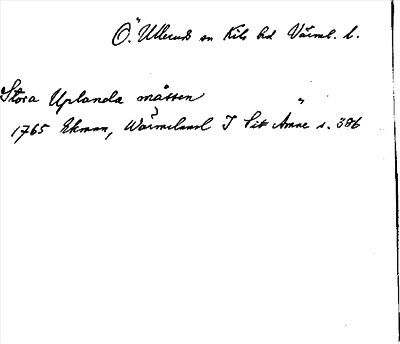 Ö. Ullerud sn Kils hd Värml. l.
Stora Uplanda måssen
1765 Ekman, Wärmeland I kit Amne s. 386